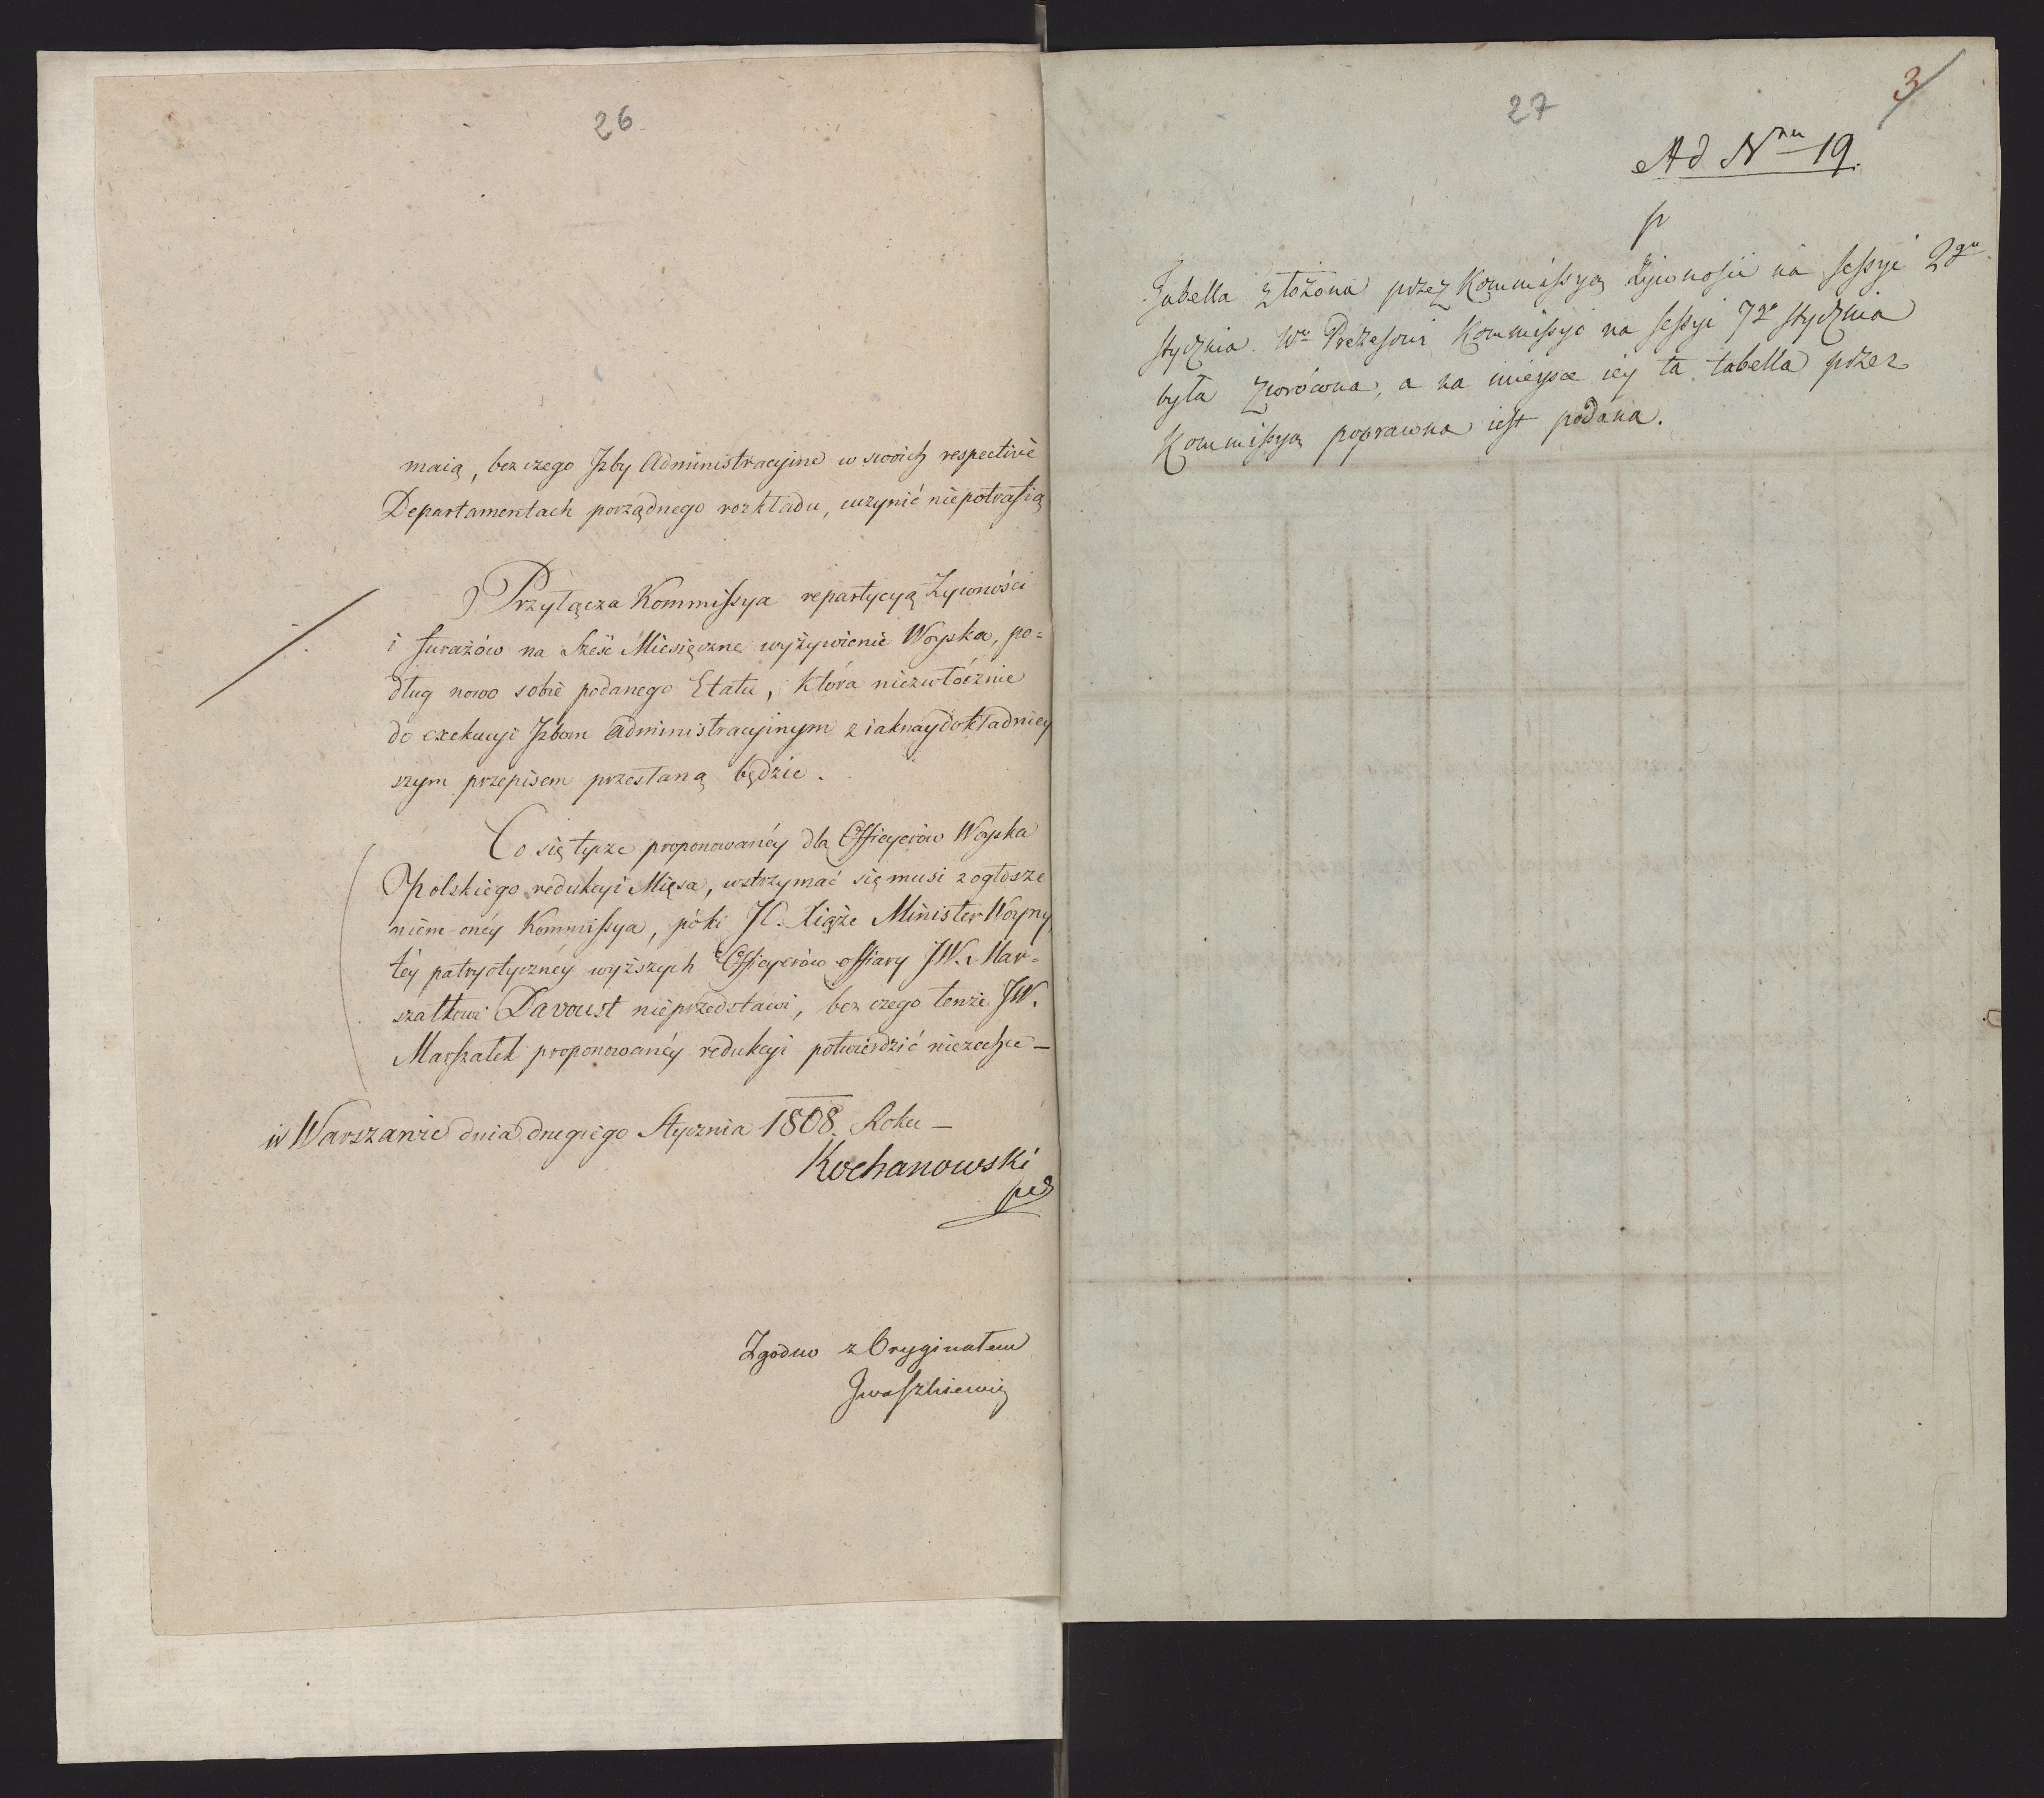 26
maią, bez czego Izby Administracyine w swoich respective
Departamentach porządnego rozkładu, uczynić niepotrafią
Przyłącza Kommissya repartycyą Żywności
i furażów na Sześć Miesięczne wyżywienie Woyska, po=
dług nowo sobie podanego Etatu, która niezwłócznie
do exekucyi Izbom Administracyinym z iaknaydokładniey
szym przepisem przesłaną będzie.
Co się tycze proponowanéy dla Officyerów Woyska
Polskiego redukcyi Mięsa, wstrzymać się musi z ogłosze
niem onéy Kommissya, póki JO. Xiąże Minister Woyny
téy patryotycznéy wyższych Officyerów offiary JW. Mar=
szałkowi Davoust nieprzedstawi, bez czego tenże JW.
Marszałek proponowanéy redukcyi potwierdzić niezechce —
w Warszawie dnia drugiego Stycznia 1808. Roku —
Kochanowski
Zgodno z Oryginałem
Iwaszkiewicz
27
3
Ad Nru 19.
Tabella złożona przez Kommissyą Żywności na sessyi 2go
stycznia Wu Prezesowi Kommissyi na sessyi 7o stycznia
była zwrócona, a na mieysce iey ta tabella przez
Kommissyą poprawna iest podana.